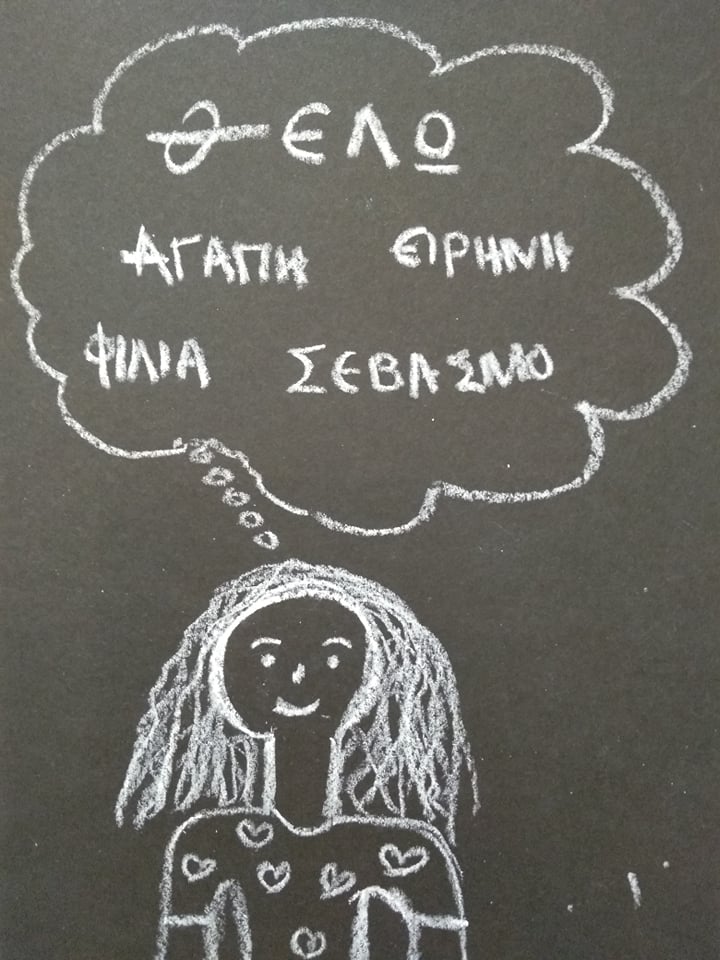 ΘΕΛΩ
ΑΓΑΠΗ ΕΙΡΗΝΗ
ΦΙΛΙΑ ΣΕΒΑΣΜΟ